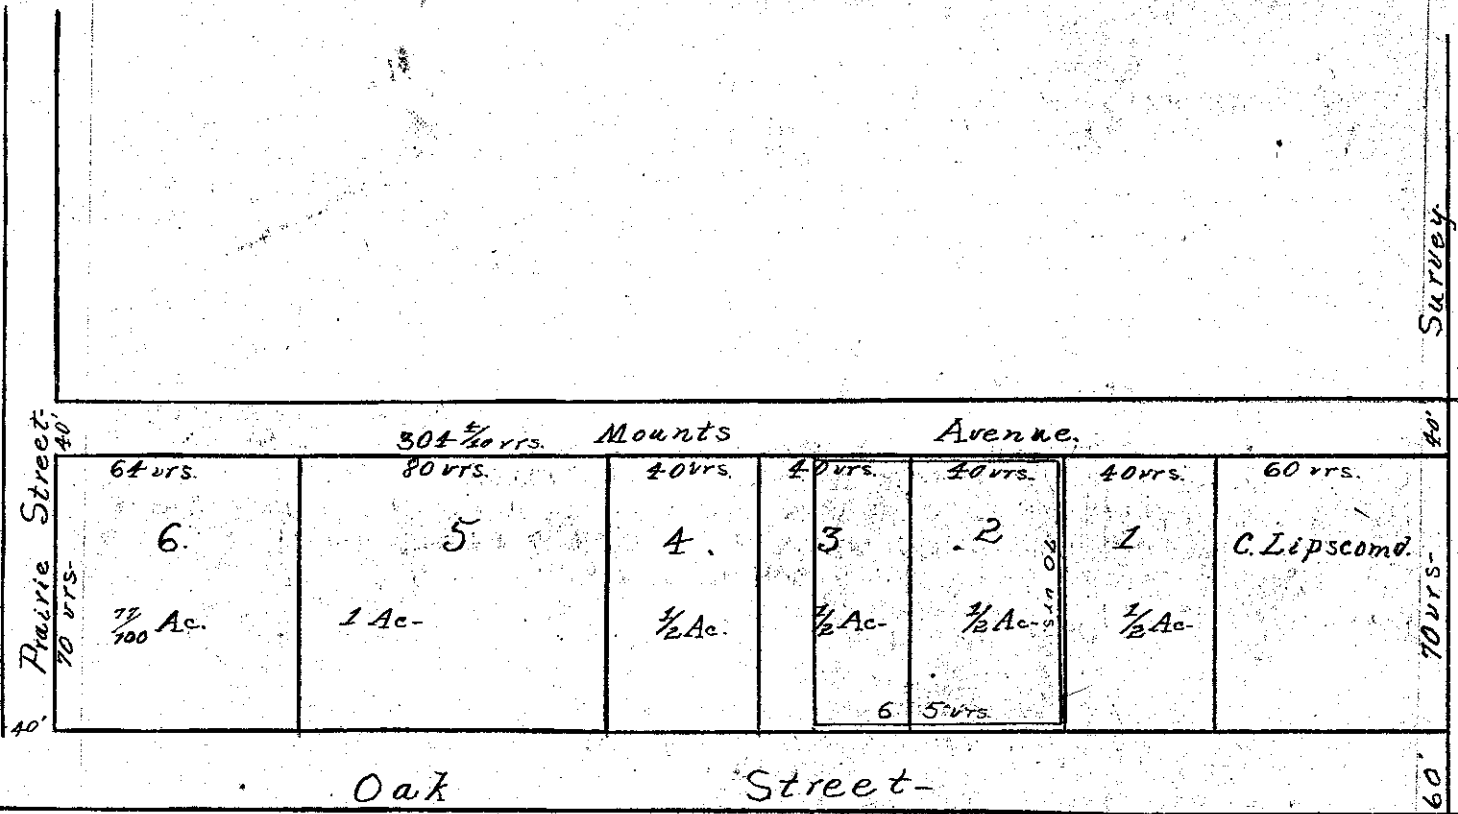 Survey
Prairie Street-
40'
304 4/10 vrs. Mounts Avenue.
40'
64 vrs.
80 vrs.
40 vrs.
40 vrs.
40 vrs.
40 vrs.
60 vrs.
6.
5
4.
3
2
1
C. Lipscomb.
70 vrs-
77/100 Ac.
1 Ac-
1/2 Ac.
1/2 Ac-
1/2 Ac-
70 vrs
1/2 Ac-
70 vrs-
65 vrs
40'
Oak Street-
60'